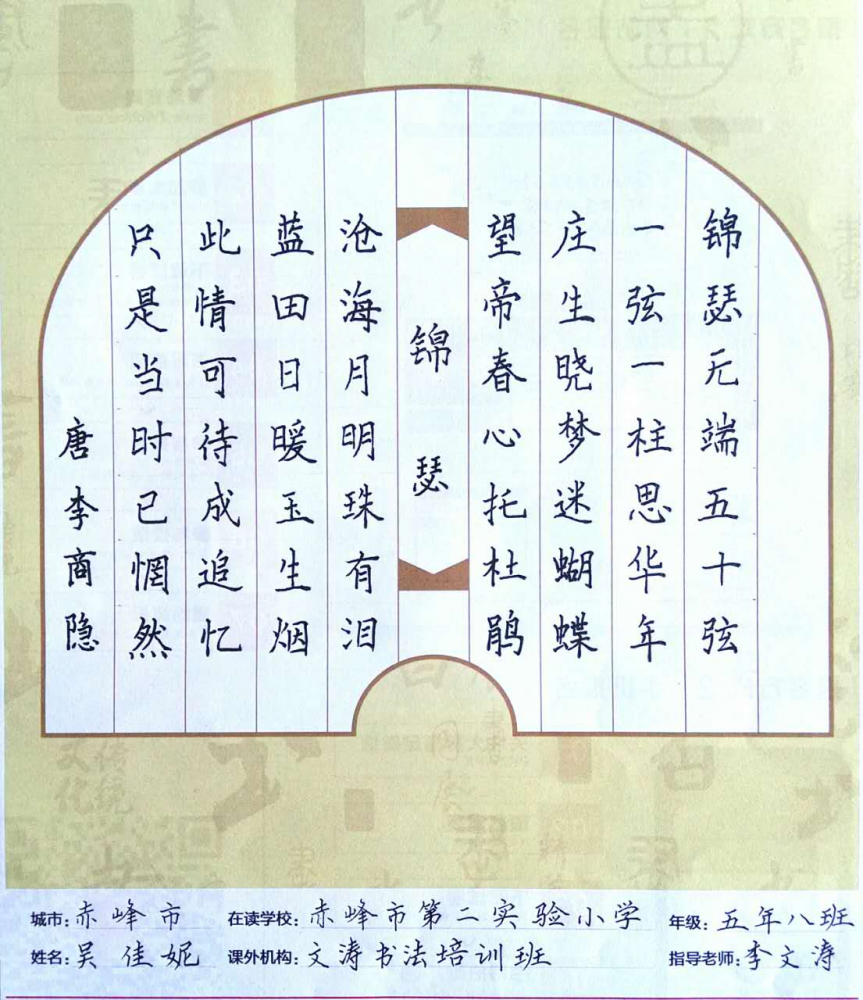 锦瑟无端五十弦
一弦一柱思华年
庄生晓梦迷蝴蝶
望帝春心托杜鹃
锦瑟
沧海月明珠有泪
蓝田日暖玉生烟
此情可待成追忆
只是当时已惘然
唐李商隐
城市:赤峰市 在读学校:赤峰市第二实验小学 年级:五年八班
姓名:吴佳妮 课外机构:文涛书法培训班 指导老师:李文涛